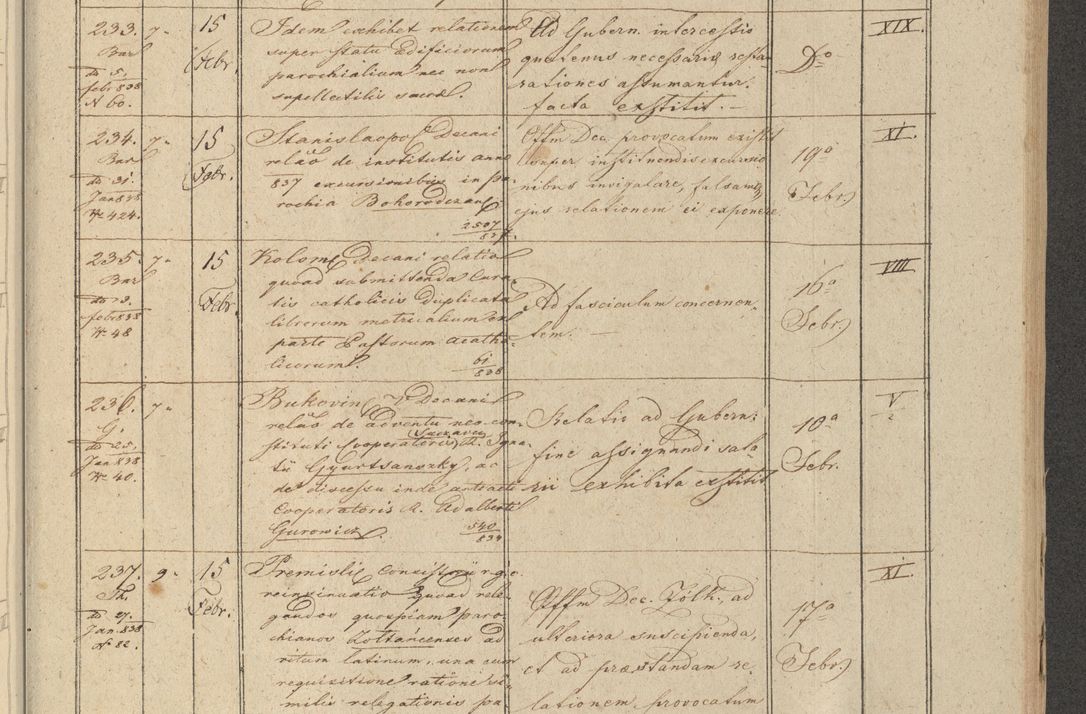 233. 7-
Bar
dto 5.
febr 838
N 60.
15
Febr.
Idem exhibet relationem
super statu Edificiorum
parochialium nec non
supellectilis sacræ.
Ad Gubern. intercessio
quatenus necessariæ resta-
rationes assumantur.
facta exstitit. —
Do
XIX.
234. 7-
Bar
dto 31.
Jan 838
N 424.
15
Febr.
Stanislaopol Decani
relao de institutis anno
837 excursionibus in pa-
rochia Bohorodczan
2507
837.
Offm Dec. provocatum exstitit
super instituendis excursio
nibus invigilare, falsam
ejus relationem ei exponere
19a
Febr.)
XI.
235. 7-
Bar
dto 3.
febr 838
N 48
15
Febr.
Kolom Decani relatio
quoad submittenda Cura
tis catholicis Duplicata
librorum metricalium ex
parte Pastorum acatho-
licorum.
61
838
Ad fasciculum concernen-
tem. —
16a
Febr.)
VIII
236. 7-
G.
dto 25.
Jan 838
N 40.
Bukovin Decani
relao de adventu neo-con-
stituti Cooperatoris (Suczavæ) A. Igna-
tii Gyurtsanszky, ac
de discessu inde antracti
Cooperatoris A. Adalberti
Gurowicz.
540
837
Relatio ad Gubern:
fine assignandi sala
rii exhibita exstitit
10a
Febr.
V
237. 9-
Th.
dto 27.
Jan. 838
N 82.
15
Febr.
Premisli Consist
reinsinuatio quoad rele-
gandos quospiam paro-
chianos Zoltańcenses ad
ritum latinum, una cum
requisitione ratione si-
milis relegationis pa-
Offm Dec. Zolk. ad
ulteriora suscipienda,
et ad præstandam re
lationem provocatum
17a
Febr.)
XI.